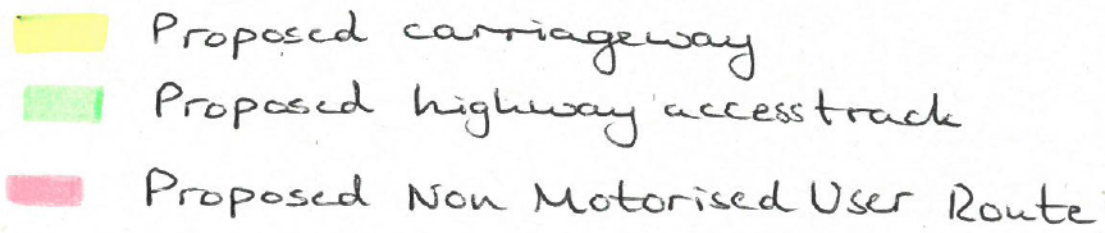 Proposed carriageway
Proposed highway access track
Proposed Non Motorised User Route